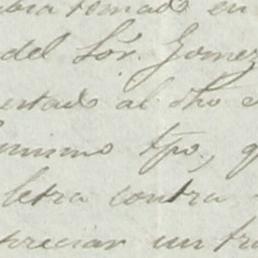 tomado en
del Sór. Gomez
estado al dho
mismo tpo, q
letra contra
preciar un tra